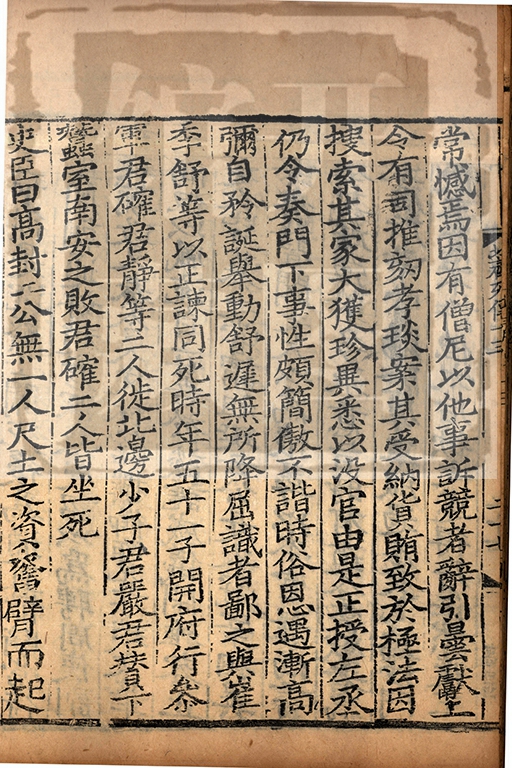 常憾焉因有僧尼以他事訴競者辭引曇獻上
令有司推劾孝琰案其受納貨賄致於極法因
搜索其家大獲珍異悉以没官由是正授左丞
仍令奏門下事性頗簡傲不諧時俗恩遇漸高
彌自矜誕舉動舒遲無所降屈識者鄙之與崔
季舒等以正諫同死時年五十一子開府行參
軍君確君靜等二人徙北邊少子君嚴君賛下
蠶室南安之敗君確二人皆坐死
史臣曰高封二公無一人尺土之資奮臂而起